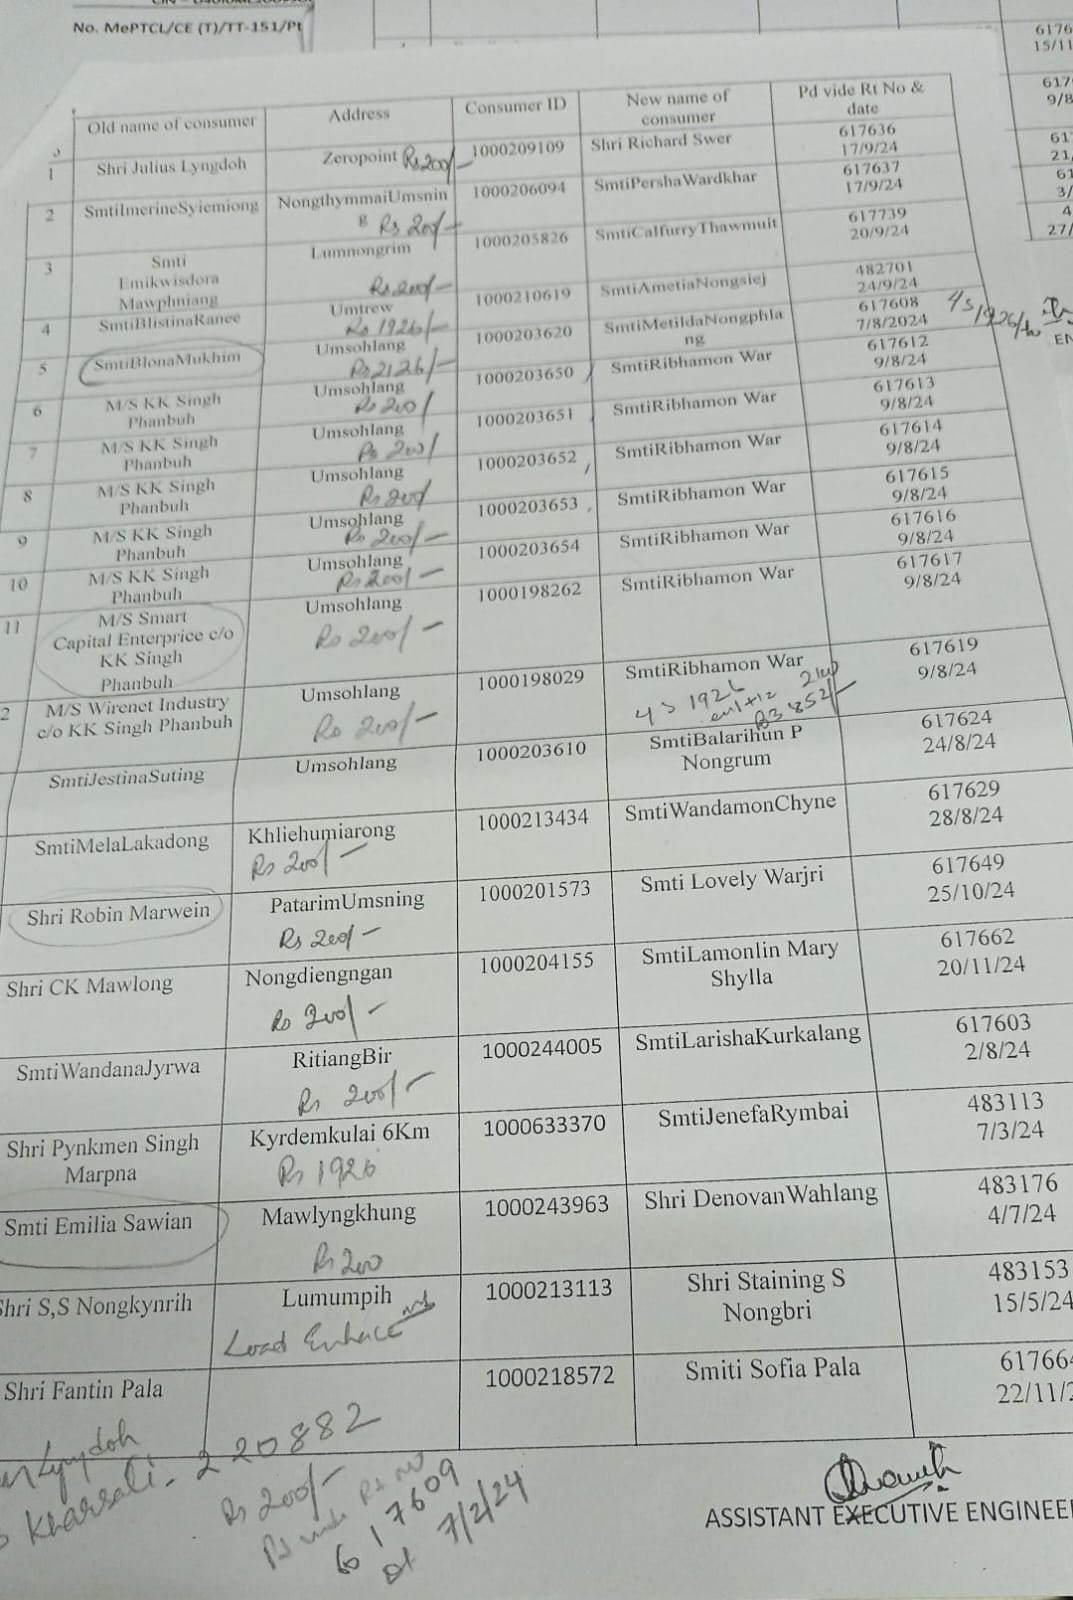 No. MePTCL/CE (T)/TT-151/Pt
Old name of consumer Address Consumer ID New name of consumer Pd vide Rt No & date
1 Shri Julius Lyngdoh Zeropoint Rs 200/- 1000209109 Shri Richard Swer 617636 17/9/24
2 SmtiImerineSyiemiong NongthymmaiUmsning Rs 200/- 1000206094 SmtiPershaWardkhar 617637 17/9/24
3 Smti Emikwisdora Mawphniang Lumnongrim Rs 200/- 1000205826 SmtiCalfurryThawmuit 617739 20/9/24
4 SmtiBlistinaRanee Umtrew Rs 1926/- 1000210619 SmtiAmetiaNongsiej 482701 24/9/24
5 SmtiBlonaMukhim Umsohlang Rs 2126/- 1000203620 SmtiMetildaNongphlang 617608 7/8/2024
6 M/S KK Singh Phanbuh Umsohlang Rs 200/ 1000203650 SmtiRibhamon War 617612 9/8/24
7 M/S KK Singh Phanbuh Umsohlang Rs 200/ 1000203651 SmtiRibhamon War 617613 9/8/24
8 M/S KK Singh Phanbuh Umsohlang Rs 200/ 1000203652 SmtiRibhamon War 617614 9/8/24
9 M/S KK Singh Phanbuh Umsohlang Rs 200/- 1000203653 SmtiRibhamon War 617615 9/8/24
10 M/S KK Singh Phanbuh Umsohlang Rs 200/- 1000203654 SmtiRibhamon War 617616 9/8/24
11 M/S Smart Capital Enterprice c/o KK Singh Phanbuh Umsohlang Rs 200/- 1000198262 SmtiRibhamon War 617617 9/8/24
2 M/S Wirenet Industry c/o KK Singh Phanbuh Umsohlang Rs 200/- 1000198029 SmtiRibhamon War 617619 9/8/24
SmtiJestinaSuting Umsohlang 1000203610 SmtiBalarihun P Nongrum 617624 24/8/24
SmtiMelaLakadong Khliehumiarong Rs 200/- 1000213434 SmtiWandamonChyne 617629 28/8/24
Shri Robin Marwein PatarimUmsning Rs 200/- 1000201573 Smti Lovely Warjri 617649 25/10/24
Shri CK Mawlong Nongdiengngan Rs 200/- 1000204155 SmtiLamonlin Mary Shylla 617662 20/11/24
SmtiWandanaJyrwa RitiangBir Rs 200/- 1000244005 SmtiLarishaKurkalang 617603 2/8/24
Shri Pynkmen Singh Marpna Kyrdemkulai 6Km Rs 1926 1000633370 SmtiJenefaRymbai 483113 7/3/24
Smti Emilia Sawian Mawlyngkhung Rs 200 1000243963 Shri DenovanWahlang 483176 4/7/24
Shri S,S Nongkynrih Lumumpih Load Enhace 1000213113 Shri Staining S Nongbri 483153 15/5/24
Shri Fantin Pala 1000218572 Smiti Sofia Pala 617664 22/11/2
Lyngdoh
Kharsati - 220882
Rs 200/-
Rt No
617609
dt 7/2/24
ASSISTANT EXECUTIVE ENGINEER